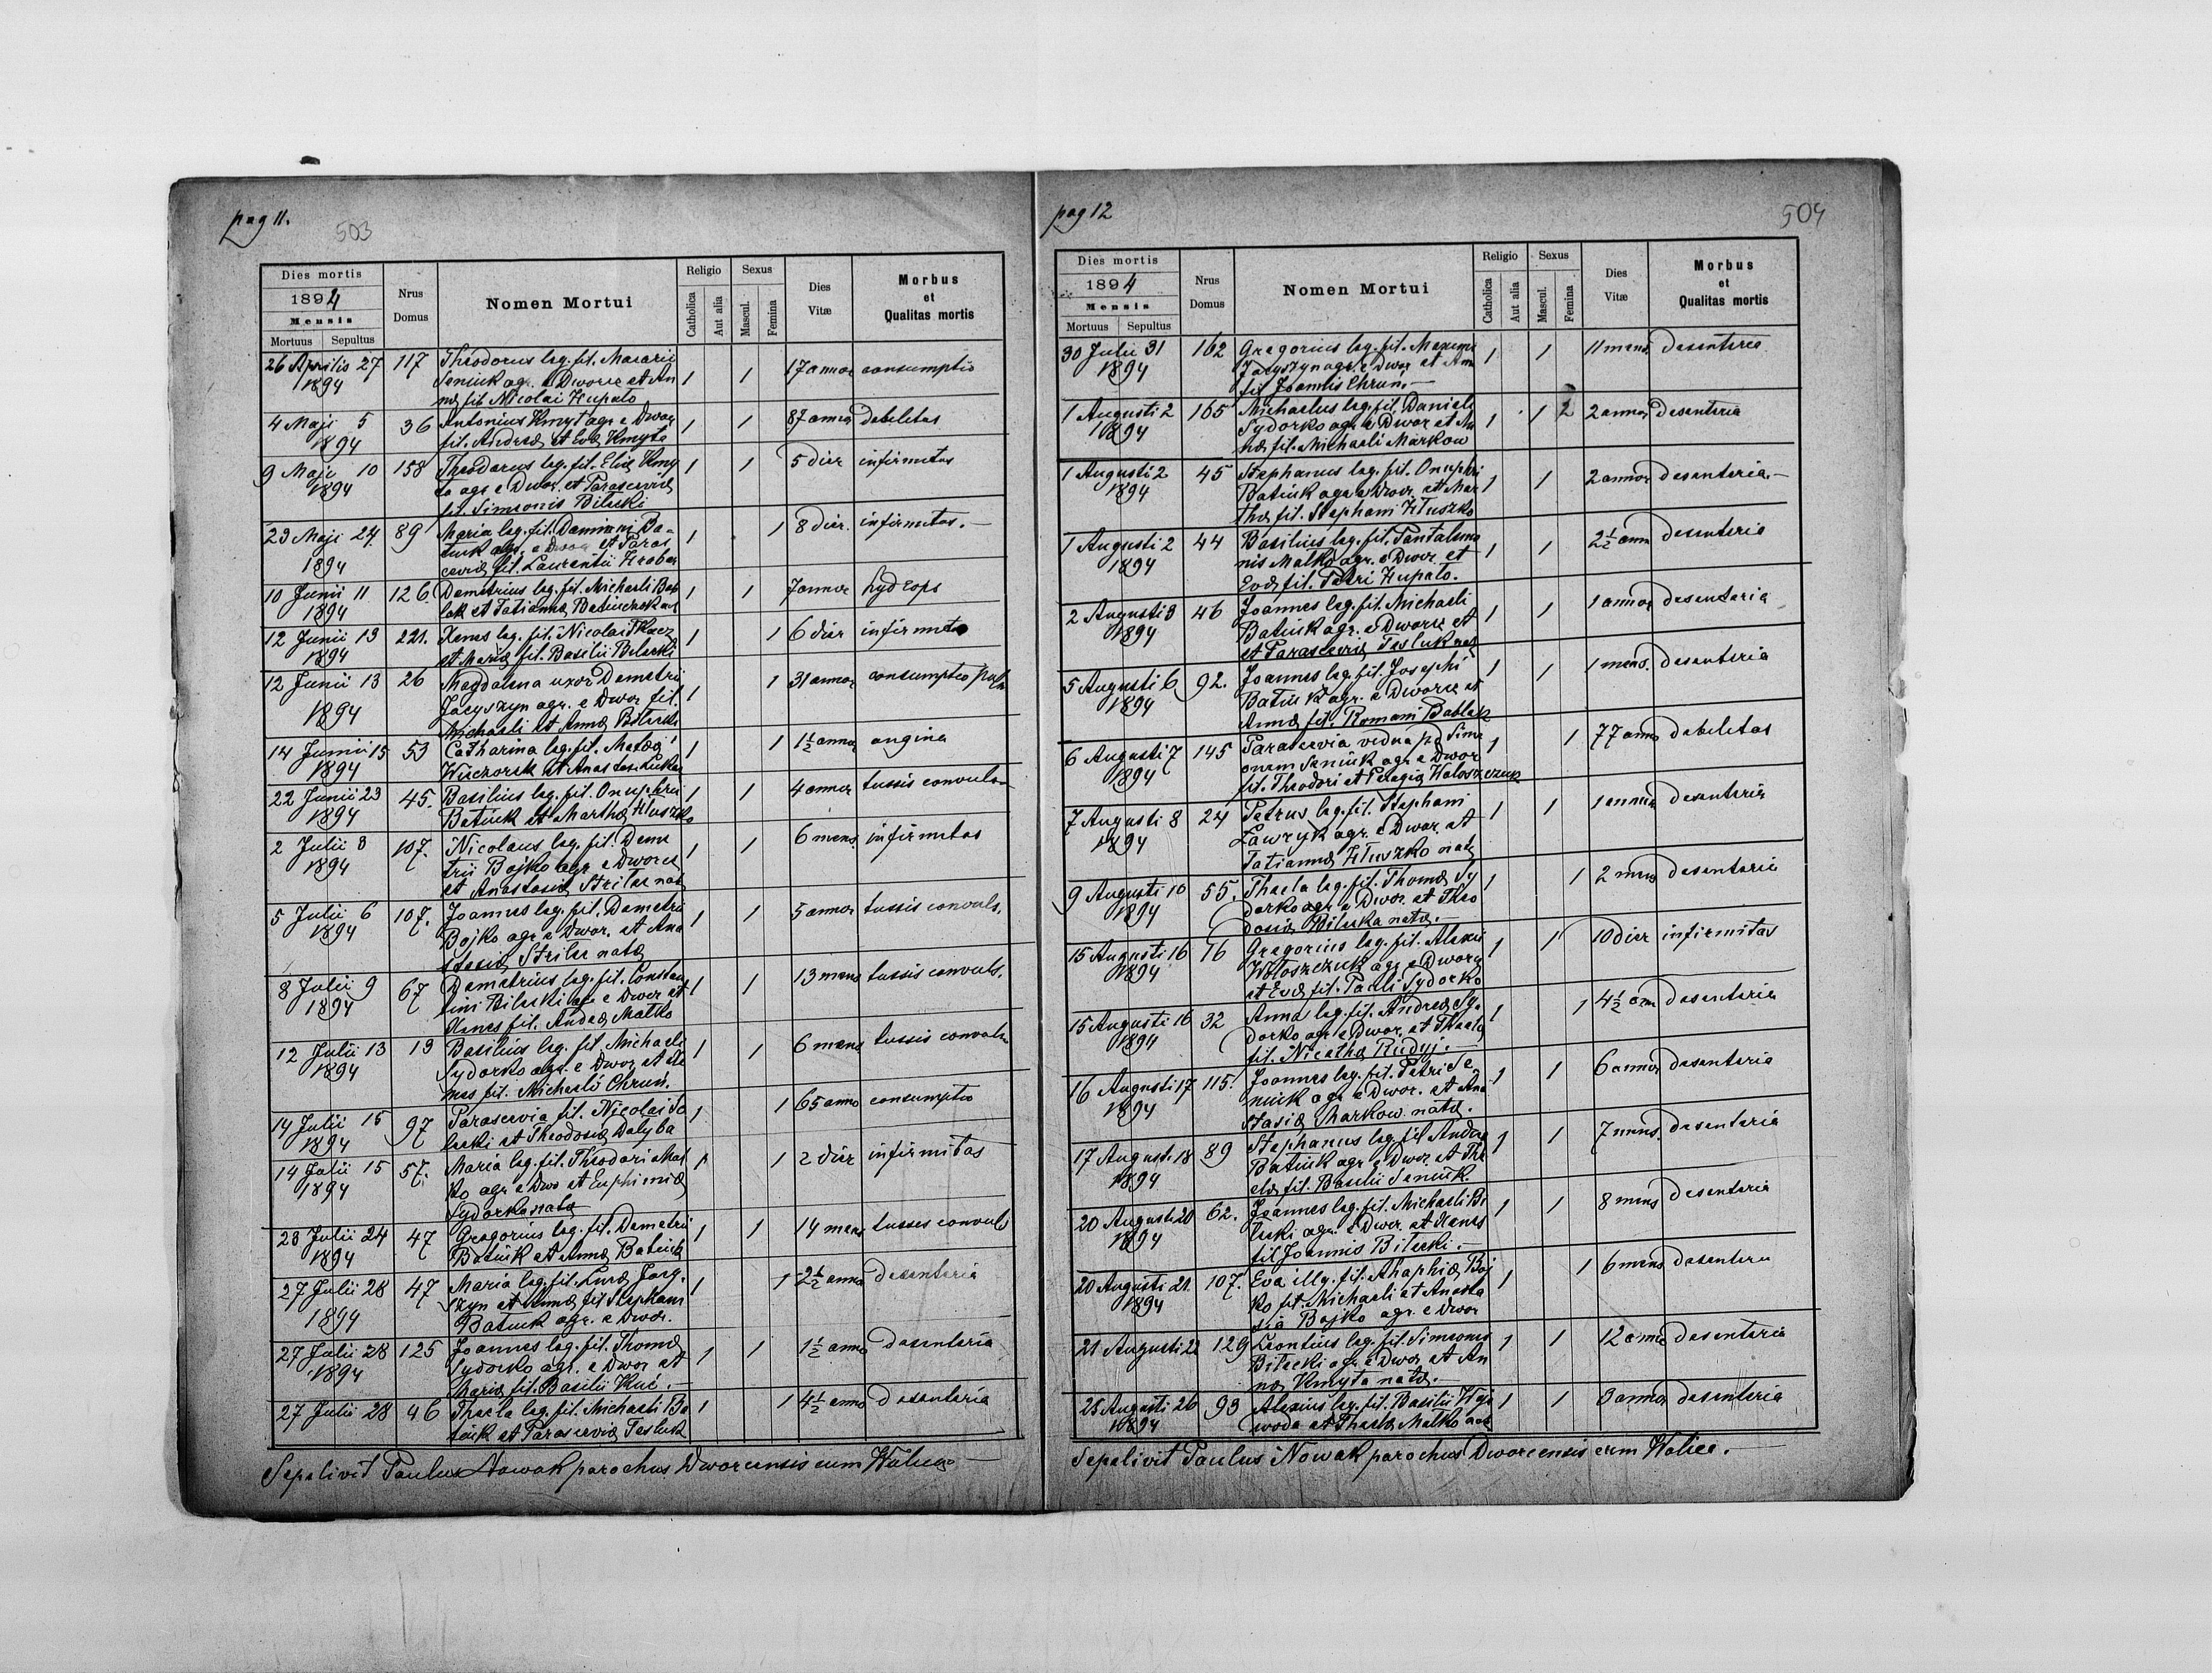 pag 11.
503
Dies mortis
1894
Mensis
Mortuus Sepultus
Nrus Domus
Nomen Mortui
Religio
Catholica
Aut alia
Sexus
Mascul.
Femina
Dies Vitæ
Morbus et Qualitas mortis
26 Aprilis 27 117 Theodorus leg. fil. Macarii 17 annor consumptio
1894 Seniuk agr. e Dworce et An 1 1
næ fil. Nicolai Hupalo
4 Maji 5 36 Antonius Kmyt agr e Dwor 1 1 87 annor debelitas
1894 fil. Andreæ et Evæ Kmyta
9 Maji 10 158 Theodorus leg. fil. Eliæ Kmy 1 1 5 dier infirmitas
1894 ta agr e Dwor. et Parasceviæ
fil. Simeonis Bilecki
23 Maji 24 89 Maria leg. fil. Damiani Ba- 1 1 8 dier. infirmitas.
1894 tiuk agr. e Dwor et Paras
ceviæ fil. Laurentii
10 Junii 11 126. Demetrius leg. fil. Michaeli Bab 1 1 7 annor hydrops
1894 lak et Tatianna Batiuczak nat
12 Junii 13 221. Xenes leg. fil. Nicolai Tkacz 1 1 6 dier infirmitas
1894 et Mariæ fil. Basilii Bilecki
12 Junii 13 26 Magdalena uxor Demetrii 1 1 31 annor consumptio pulm
1894 Jacyszyn agr. e Dwor fil.
Michaeli et Annæ Bilecki
14 Junii 15 53 Catharina leg. fil. Matæi 1 1 1½ annor angina
1894 Wieczorek et Anastasi
22 Junii 23 45. Basilius leg. fil. Onuphri 1 1 4 annor tussis convuls
1894 Batiuk et Marthæ Hluszko
2 Julii 3 107. Nicolaus leg. fil. Deme 1 1 6 mens. infirmitas
1894 trii Bojko agr. e Dworce
et Anastasiæ Strilec nat
5 Julii 6 107. Joannes leg. fil. Demetrii 1 1 5 annor tussis convuls.
1894 Bojko agr e Dwor. et Ana
stasiæ Strilec natæ
8 Julii 9 67 Demetrius leg. fil. Constan 1 1 13 mens tussis convuls.
1894 tini Bilecki agr e Dwor et
Xenes fil. Andræ Matko
12 Julii 13 19 Basilius leg. fil. Michaeli 1 1 6 mens tussis convuls
1894 Sydorko agr. e Dwor. et Xe
nes fil. Michaeli Chruń.
14 Julii 15 97 Parascevia fil. Nicolai 1 1 65 anno consumptio
1894 et Theodosiæ Dalyba
14 Julii 15 57. Maria leg. fil. Theodori Mat 1 1 2 dier infirmitas
1894 ko agr e Dwo et Euphimiæ
Sydorko nata
23 Julii 24 47 Gregorius leg. fil. Demetrii 1 1 14 mens tusses convuls
1894 Batiuk et Annæ Batiuk
27 Julii 28 47 Maria leg. fil. Lucæ Jacy. 1 1 2½ anno desenteria
1894 szyn et Annæ fil Stephani
Batiuk agr. e Dwor.
27 Julii 28 125 Joannes leg. fil. Thomæ 1 1 1½ anno desenteria
1894 Sydorko agr. e Dwor et
Mariæ fil. Basilii Kuć.
27 Julii 28 46 Thecla leg. fil. Michaeli Ba 1 1 4½ anno desenteria
tiuk et Parasceviæ Tesluk
Sepelivit Paulus Nowak parochus Dworcensis cum Wulica
pag 12
504
Dies mortis
1894
Mensis
Mortuus Sepultus
Nrus Domus
Nomen Mortui
Religio
Catholica
Aut alia
Sexus
Mascul.
Femina
Dies Vitæ
Morbus et Qualitas mortis
30 Julii 31 162 Gregorius leg. fil. Maximi 1 1 11 mens desenteria
1894 Jacyszyn agr. e Dwor et An
fil Joannis Chruń.
1 Augusti 2 165 Michaelus leg. fil. Danieli 1 1 2 2 annor desenteria
1894 Sydorko agr. e Dwor et An
næ fil. Michaeli Markow
1 Augusti 2 45 Stephanus leg. fil. Onuphri 1 1 2 annor desenteria.
1894 Batiuk agr e Dwor. et Mar
thæ fil. Stephani Hluszko
1 Augusti 2 44 Basilius leg. fil. Pantalemo 1 1 2½ ann desenteria
1894 nis Matko agr. e Dwor. et
Evæ fil. Petri Hupalo.
2 Augusti 3 46 Joannes leg. fil. Michaeli 1 1 1 annor desenteria
1894 Batiuk agr. e Dworce et
et Parasceviæ Tesluk nat
5 Augusti 6 92. Joannes leg. fil. Josephi 1 1 1 mens. desenteria
1894 Batiuk agr. e Dworce et
Annæ fil. Romani Bablak
6 Augusti 7 145 Parascevia vidua po Sime 1 1 77 anno debelitas
1894 onem Seniuk agr e Dwor
fil. Theodori et Pelagiæ Woloszczuk
7 Augusti 8 24 Petrus leg. fil. Stephani 1 1 1 annor desenteria
1894 Lawryk agr. e Dwor. et
Tatiannæ Hluszko natæ
9 Augusti 10 55. Thecla leg. fil. Thomæ Sy 1 1 2 mens desenteria
1894 dorko agr e Dwor. et Theo
dosiæ Bilecka natæ.
15 Augusti 16 76 Gregorius leg. fil. Alexii 1 1 10 dier infirmitas
1894 Woloszczuk agr e Dworce
et Evæ fil. Pauli Sydorko
15 Augusti 16 32 Anna leg. fil. Andreæ Sy- 1 1 4½ ann desenteria
1894 dorko agr e Dwor. et Theclæ
fil. Nicethæ Rudyj.
16 Augusti 17 115. Joannes leg. fil. Petri Se 1 1 6 annor desenteria
1894 niuk agr e Dwor. et Ana
stasiæ Markow natæ.
17 Augusti 18 89 Stephanus leg. fil Andræ 1 1 7 mens. desenteria
1894 Batiuk agr e Dwor et The
clæ fil. Basilii Seniuk
20 Augusti 20 62. Joannes leg. fil. Michaeli Bi 1 1 8 mens desenteria
1894 lecki agr. e Dwor. et Xenes
fil Joannis Bilecki.
20 Augusti 21. 107. Eva illg. fil. Ahaphiæ Boj 1 1 6 mens desenteria
1894 ko fil. Michaeli et Anasta
siæ Bojko agr. e Dwor
21 Augusti 22 129 Leontius leg. fil. Simeonis 1 1 12 anno desenteria
Bilecki agr e Dwor et An
næ Kmyta natæ.
25 Augusti 26 93 Alexius leg. fil. Basilii 1 1 3 annor desenteria
1894 woda et Theclæ Matko nat
Sepelivit Paulus Nowak parochus Dworcensis cum Wolica.